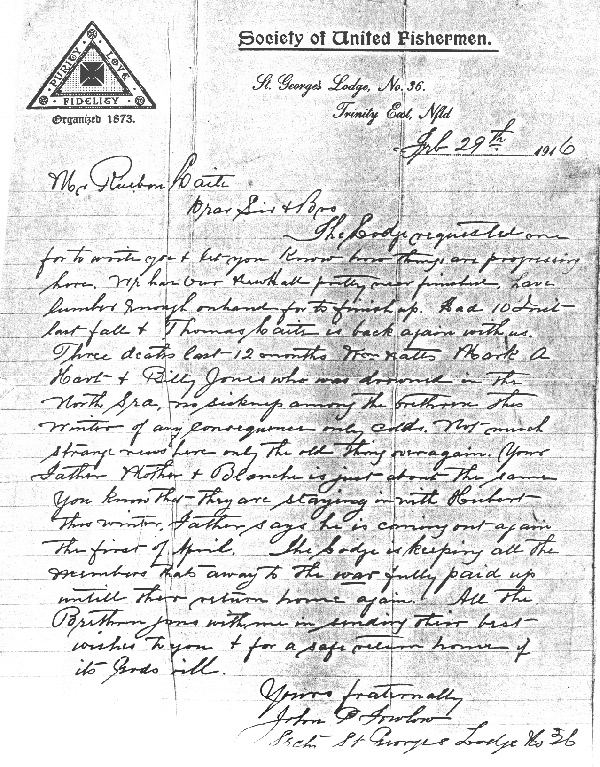 Society of United Fishermen.
PURITY LOVE
FIDELITY
Organized 1873.
St. George's Lodge, No. 36.
Trinity East, Nfld
Feb 29th 1916
Mr Rueben Waite
Dear Sir & Bro
The Lodge requested me
for to write you & let you know how things are progressing
here. We have our new hall pretty near finished, have
lumber enough on hand for to finish up. Had 10
last fall & Thomas Waite is back again with us.
Three deaths last 12 months Watts Mark A
Hart & Billy Jones who was drowned in the
North Sea, no sickness among the brethren this
winter of any consequence only colds. Not much
strange news here only the old thing over again. Your
Father Mother & Blanche is just about the same
you know that they are staying in with Hubert
this winter. Father says he is coming out again
the first of April. The Lodge is keeping all the
members that away to the war fully paid up
untill their return home again. All the
Brethren joins with me in sending their best
wishes to you & for a safe return home if
its Gods will.
Yours fraternally
John P Fowlow
Secty St Georges Lodge No 36